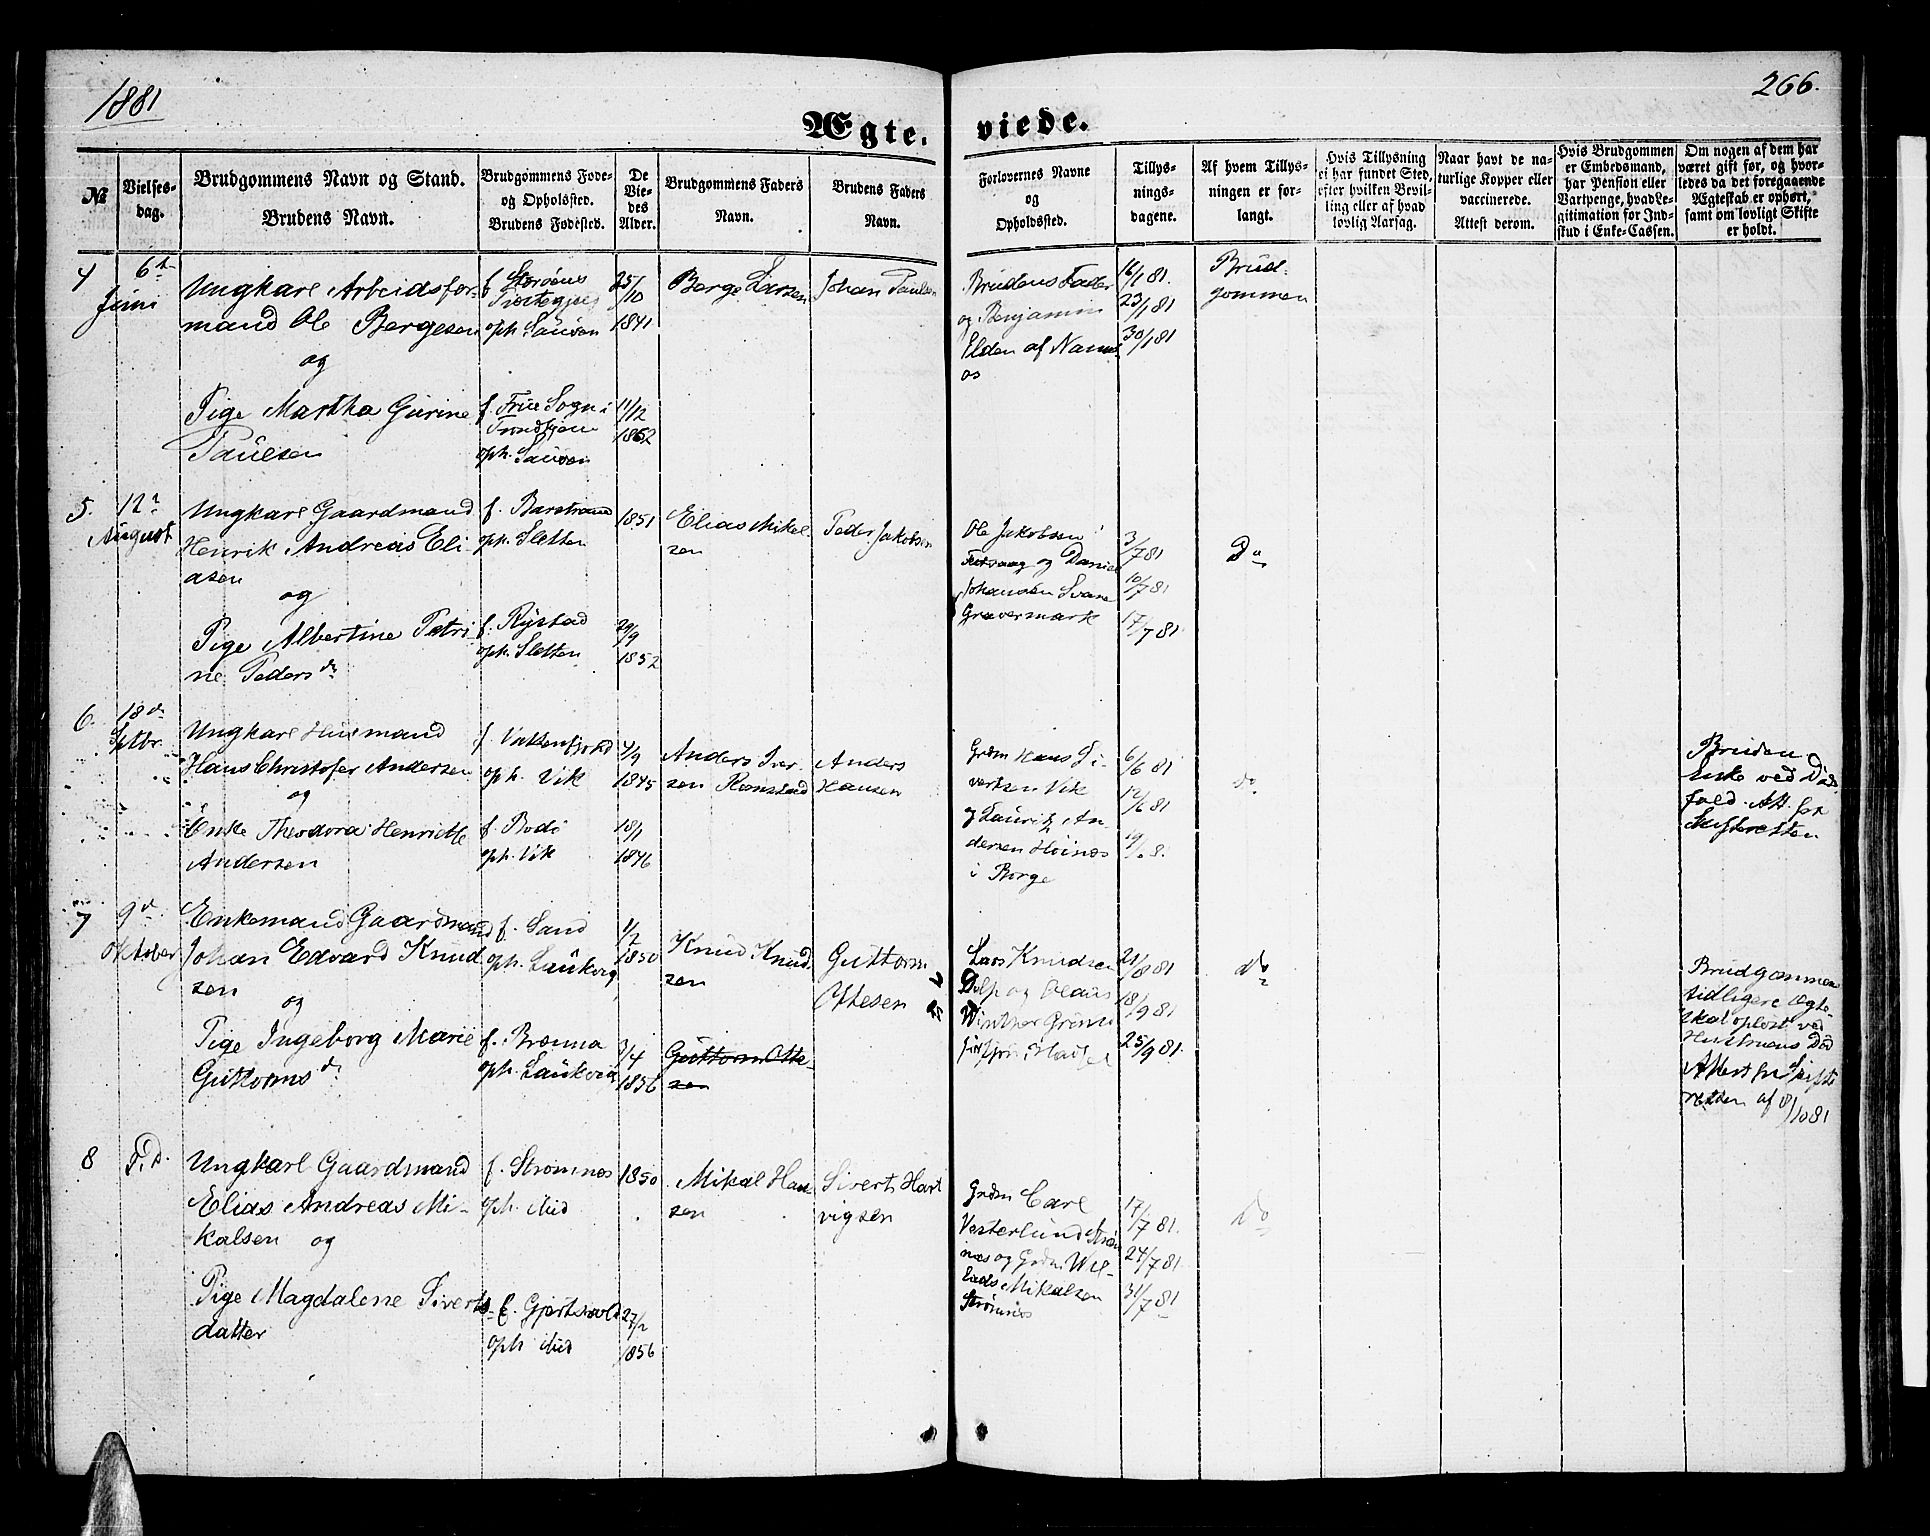 1881
266.
Ægte.
viede.
№
Vielses-
dag.
Brudgommens Navn og Stand.
Brudens Navn.
Brudgommens Føde-
og Opholdssted.
Brudens Fødested.
De
Vie-
des
Alder.
Brudgommens Faders
Navn.
Brudens Faders
Navn.
Forlovernes Navne
og
Opholdssted.
Tillys-
nings-
dagene.
Af hvem Tillys-
ningen er for-
langt.
Hvis Tillysning
ei har fundet Sted,
efter hvilken Bevil-
ling eller af hvad
lovlig Aarsag.
Naar havt de na-
turlige Kopper eller
vaccinerede.
Attest derom.
Hvis Brudgommen
er Embedsmand,
har Pension eller
Vartpenge, hvad Le-
gitimation for Ind-
skud i Enke-Cassen.
Om nogen af dem har
været gift før, og hvor-
ledes da det foregaaende
Ægteskab er ophørt,
samt om lovligt Skifte
er holdt.
4
6te
Juni
Ungkarl Arbeidsfor-
mand Ole Bergesen
og
Pige Martha Gurine
Paulsen
f. Storöens
oph. Lauven
f. Frue Sogn i
Trondhjem
oph. Lauven
25/10
1841
11/12
1862
Berge Larsen
Johan Paulsen
Brudens Fader
og Benjamin
Elden af Nams
os
16/1 81.
23/1 81
30/1 81
Brud-
gommen
5.
12te
August
Ungkarl Gaardmand
Henrik Andreas Eli-
asen
og
Pige Albertine Petri
ne Pedersdr
f. Barstrand
oph. Sletten
f. Rystad
oph. Sletten
1851
29/9
1852
Elias Mikel
sen
Peder Jakobsen
Ole Jakobsen
og Daniel
Johansen Svare
Gravermark
3/7 81
10/7 81
17/7 81.
Do
6.
18de
Septbr.
Ungkarl Husmand
Hans Christofer Andersen
og
Enke Theodora Henriette
Andersen
f. Vatterfjord
oph. Vik
f. Bodö
oph. Vik
4/9
1845
18/1
1846
Anders Iver
sen Ramstad
Anders
Hansen
Grdm Hans Si-
vertsen Vik
og Lauritz An-
dersen Höinæs
i Borge
6/6 81
12/6 81
do
Bruden
Enke ved Död
fald. Att. fra
Skifteretten
7
9de
Oktober
Enkemand Gaardmand
Johan Edvard Knud
sen
og
Pige Ingeborg Marie
Guttormsdr
f. Sand
oph. Laukvig
f. Brenna
oph. Laukvig
1/2
1850
3/4
1856
Knud Knud-
sen
Guttorm Otte-
sen
Guttorm
Ottesen
Lars Knudsen
Delp og Olaus
Winther
21/8 81
18/9 81
25/9 81.
do
Brudgommens
tidligere Ægte-
skab oplöst ved
Hustruens Död
Attest fra Skifte
retten af 8/10 81
8
F. D.
Ungkarl Gaardmand
Elias Andreas Mi-
kalsen og
Pige Magdalene Siverts
datter
f. Strömnes
oph. Mid
f. Gjertsvold
oph Mid
1850
27/2
1856
Mikal Han
sen
Sivert Hart
vigsen
Grdm Carl
Vesterlund Ström
næs og Grdm Wil-
lads Mikalsen
Strömnes
17/7 81.
24/7 81
31/7 81
do